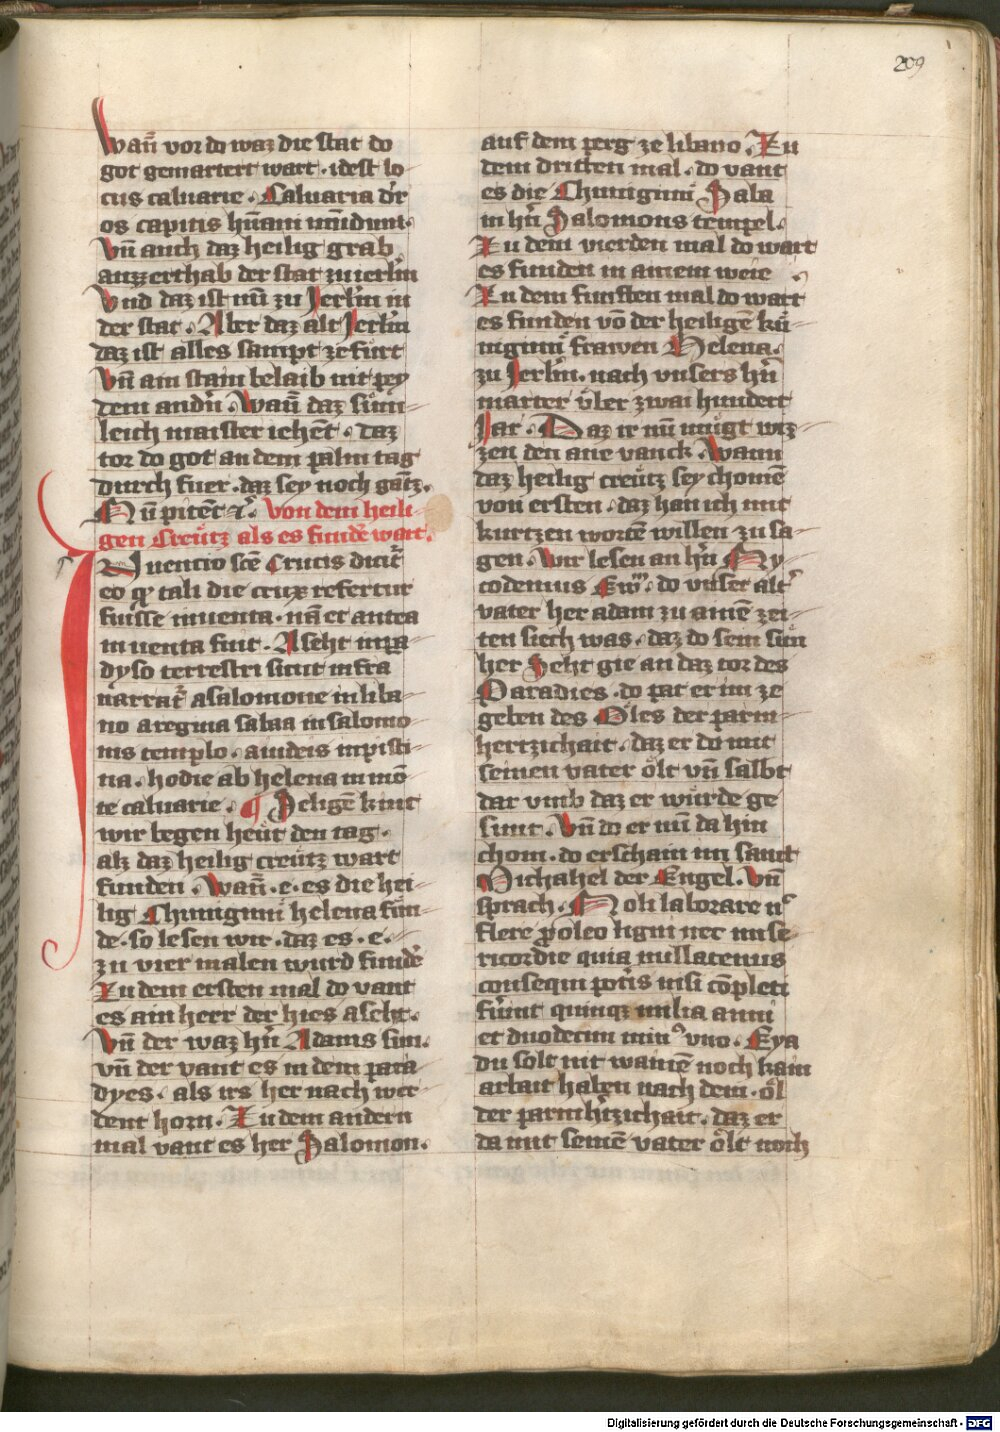 209
wañ vor do waz die stat do
got gemartert wart · idest lo
cus caluarie · Caluaria dr̄
os capitis hūam
Vñ auch daz heilig grab
auzzerthab der stat zu ierlm̄
Vnd daz ist nū zu Jerlm̄ in
der stat · Aber daz alt Jerlm̄
daz ist alles sampt zefurt
Vñ ain stain belaib nit pey
dem andn̄ · Wañ daz süm
leich maister iehēt · daz
tor do got an dem palm tag
durch fuer · daz sey noch gātz ·
Nū pitēt ꝛc̄ · Von dem heili
gen Creütz als es fundē wart ·
Inuencio scē Crucis dicit̄
eo ꝙ tali die crux refertur
fuisse inuenta · nā et antea
inuenta fuit · A seht inpa
dyso terrestri sicut infra
narrat̄ a salomone in liba
no a regina sabaa in salomo
nis templo · a iudeis in pisci
na · hodie ab helena in mō
te caluarie · ¶ Heligē kint
wir begen heüt den tag ·
alz daz heilig creütz wart
funden · Wañ · e · es die hei
lig Chuniginn helena fün
de · so lesen wir · daz es · e ·
zu vier malen wurd fundē
Zu dem ersten mal do vant
es ain herr der hies a seht ·
Vñ der waz hn̄ Adams sun ·
vñ der vant es in dem para
dyes · als irs her nach wer
dent horn · Zu dem andern
mal vant es her Salomon ·
auf dem perg ze libano · Zu
dem dritten mal · do vant
es die Chuniginn Saba
in hn̄ Salomons tempel ·
Zu dem vierden mal do wart
es funden in ainem weie ·
Zu dem funften mal do wart
es funden vō der heiligē kü
niginn frawen Helena ·
zu Jerlm̄ · nach vnsers hn̄
marter über zwai hundert
Jar · Daz ir nū mügt wiz
zen den ane vanck · Wann
daz heilig creütz sey chomē
von ersten · daz han ich mit
kurtzen wortē willen zu sa
gen · Wir lesen an hn̄ Ny
codemus Ew̄ · do vnser alt̄
vater her adam zu ainē zei
ten siech was · daz do sein sün
her Seht gie an daz tor des
Paradies · do pat er im ze
geben des Öles der parm
hertzichait · daz er do mit
seinen vater ölt vñ salbt
dar vmb daz er würde ge
sunt · Vñ do er nū da hin
chom · do erschain im sanct
Michahel der Engel · Vñ
sprach · Noli laborare n̄
flere ꝓ oleo ligni nec mise
ricordie quia nullatenus
consequi potis nisi cōpleti
fūint quinqꝫ milia anni
et duodecim min⁹ vno · Eya
du solt nit wainē noch kain
arbait haben nach dem · öl
der parmh̄tzichait · daz er
da mit seinē vater ölt noch
Digitalisierung gefördert durch die Deutsche Forschungsgemeinschaft - DFG